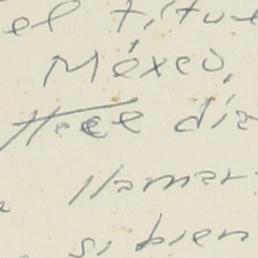 el titu
México,
Hace día
llamar
si bien